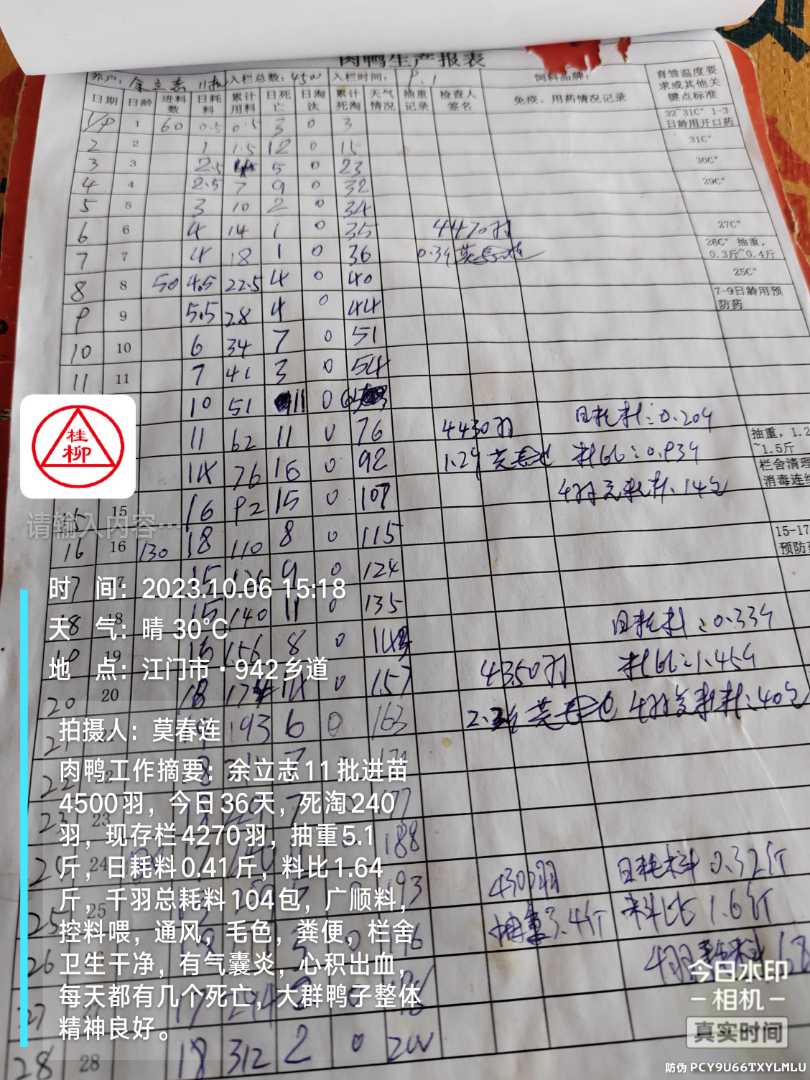 肉鸭生产报表
养户: 余立志 11批 入栏总数: 4500 入栏时间: 9.1 饲料品牌: 育雏温度要求或其他关键点标准
日期 日龄 进料数 日耗料 累计用料 日死亡 日淘汰 累计死淘 天气情况 抽重记录 检查人签名 免疫、用药情况记录
1/9 1 60 0.5 0.5 3 0 3 32~31C° 1-3日龄用开口药
2 2 1 1.5 12 0 15 31C°
3 3 2.5 5 0 23 30C°
4 4 2.5 7 9 0 32 29C°
5 5 3 10 2 0 34
6 6 4 14 1 0 35 4470羽 27C°
7 7 4 18 1 0 36 0.34 莫春连 26C° 抽重,0.3斤~0.4斤
8 8 50 4.5 22.5 4 0 40 25C°
9 9 5.5 28 4 0 44 7-9日龄用预防药
10 10 6 34 7 0 51
11 11 7 41 3 0 54
10 51 11 0 65
11 62 11 0 76 4430羽 日耗料:0.20斤 抽重,1.2~1.5斤
14 76 16 0 92 1.2斤 莫春连 料比:0.93斤 栏舍清理消毒连续
15 15 16 92 15 0 107 千羽总耗料:14包
16 16 130 18 110 8 0 115 15-17 预防
17 15 9 0 124
18 18 15 140 11 0 135
19 19 16 156 8 0 日耗料:0.33斤
20 20 18 14 0 157 4350羽 料比:1.45斤
21 193 6 0 163 莫春连 千羽总耗料:40包
22
23 23 7 177
24 188
25 25 93 4300羽 日耗料 0.32斤
26 抽重3.4斤 料比 1.6斤
27 17 294
28 28 18 312 2 0 200
桂柳
请输入内容…
时 间: 2023.10.06 15:18
天 气: 晴 30℃
地 点: 江门市·942乡道
拍摄人: 莫春连
肉鸭工作摘要: 余立志11批进苗
4500羽, 今日36天, 死淘240
羽, 现存栏4270羽, 抽重5.1
斤, 日耗料0.41斤, 料比1.64
斤, 千羽总耗料104包, 广顺料,
控料喂, 通风, 毛色, 粪便, 栏舍
卫生干净, 有气囊炎, 心积出血,
每天都有几个死亡, 大群鸭子整体
精神良好。
今日水印
相机
真实时间
防伪 PCY9U66TXYLMLU